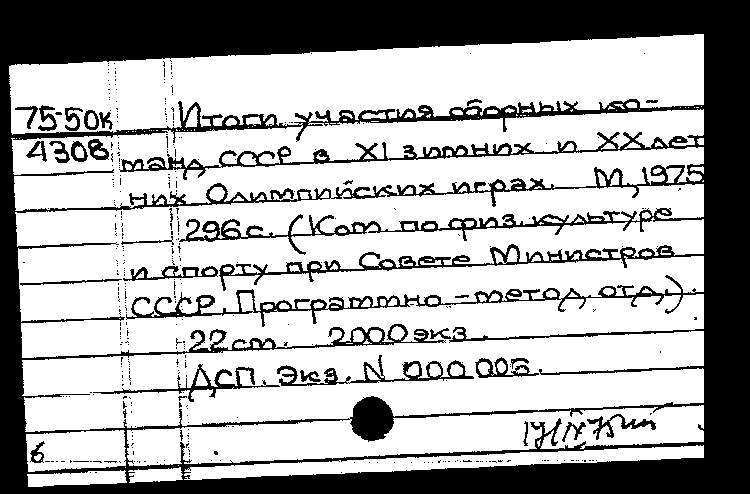 75-50к Итоги участия сборных ко-
4308 манд СССР в XI зимних и XX лет
них Олимпийских играх. М, 1975
296с. (Ком. по физ. культуре
и спорту при Совете Министров
СССР. Программно-метод. отд.).
22 см. 2000 экз.
ДСП. Экз. N 000006.
6